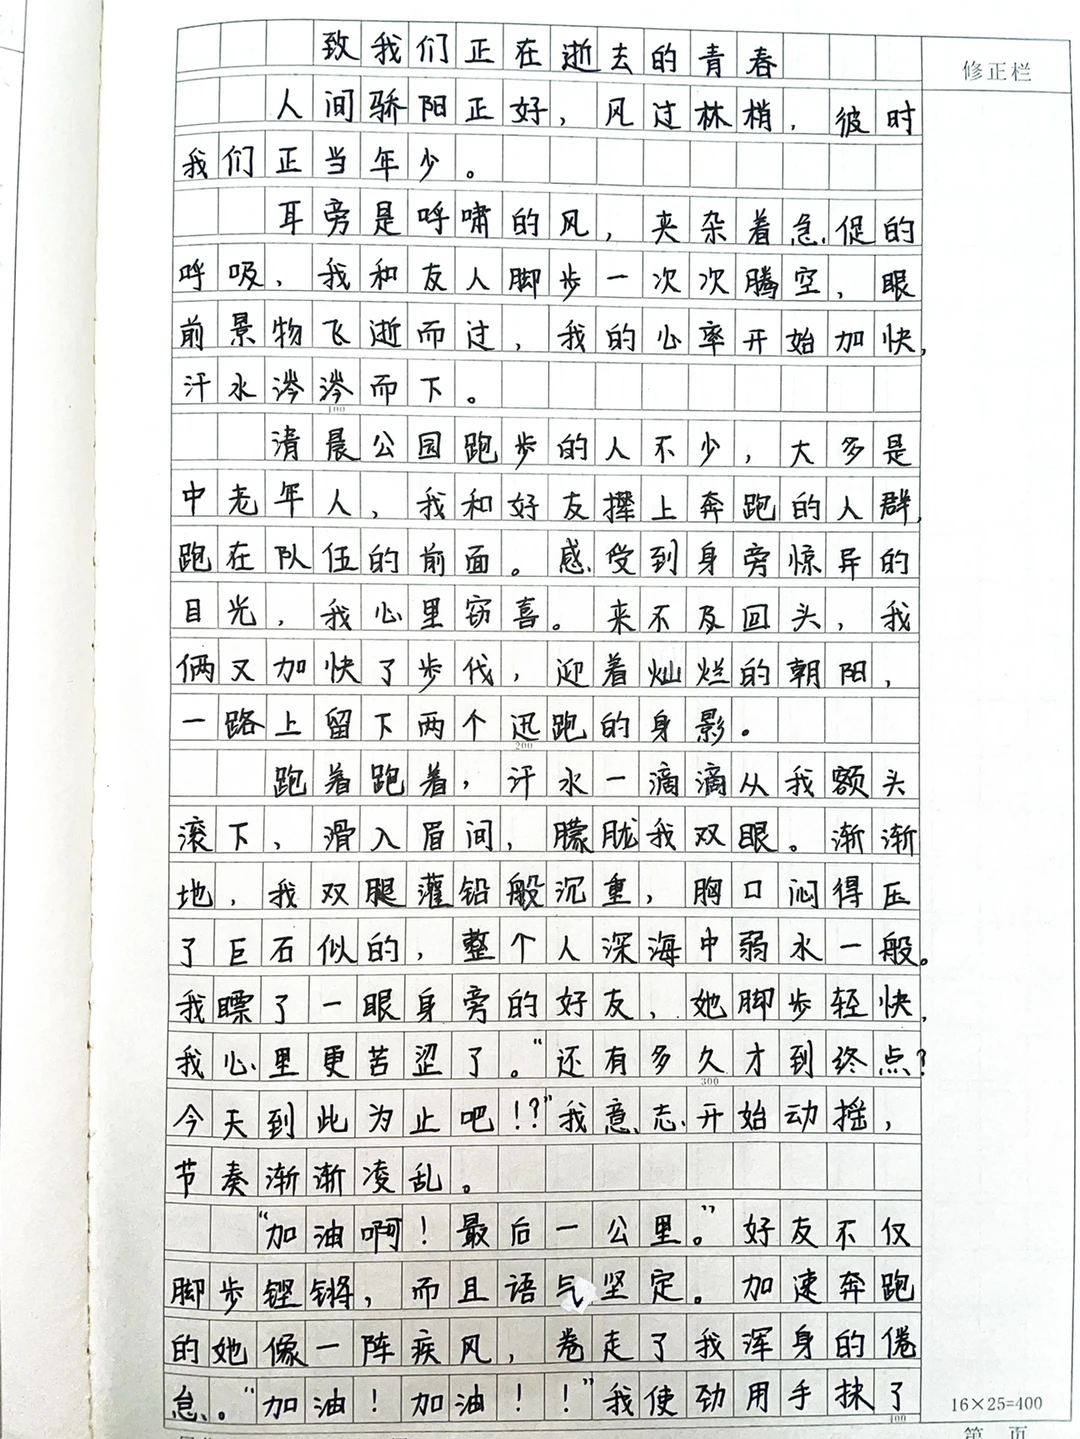 致我们正在逝去的青春
修正栏
人间骄阳正好，风过林梢，彼时
我们正当年少。
耳旁是呼啸的风，夹杂着急促的
呼吸，我和友人脚步一次次腾空，眼
前景物飞逝而过，我的心率开始加快，
汗水涔涔而下。
100
清晨公园跑步的人不少，大多是
中老年人，我和好友撵上奔跑的人群，
跑在队伍的前面。感受到身旁惊异的
目光，我心里窃喜。来不及回头，我
俩又加快了步伐，迎着灿烂的朝阳，
一路上留下两个迅跑的身影。
200
跑着跑着，汗水一滴滴从我额头
滚下，滑入眉间，朦胧我双眼。渐渐
地，我双腿灌铅般沉重，胸口闷得压
了巨石似的，整个人深海中溺水一般。
我瞟了一眼身旁的好友，她脚步轻快，
我心里更苦涩了。“还有多久才到终点？
300
今天到此为止吧！？”我意志开始动摇，
节奏渐渐凌乱。
“加油啊！最后一公里。”好友不仅
脚步铿锵，而且语气坚定。加速奔跑
的她像一阵疾风，卷走了我浑身的倦
怠。“加油！加油！！”我使劲用手抹了
400
16×25=400
第 页